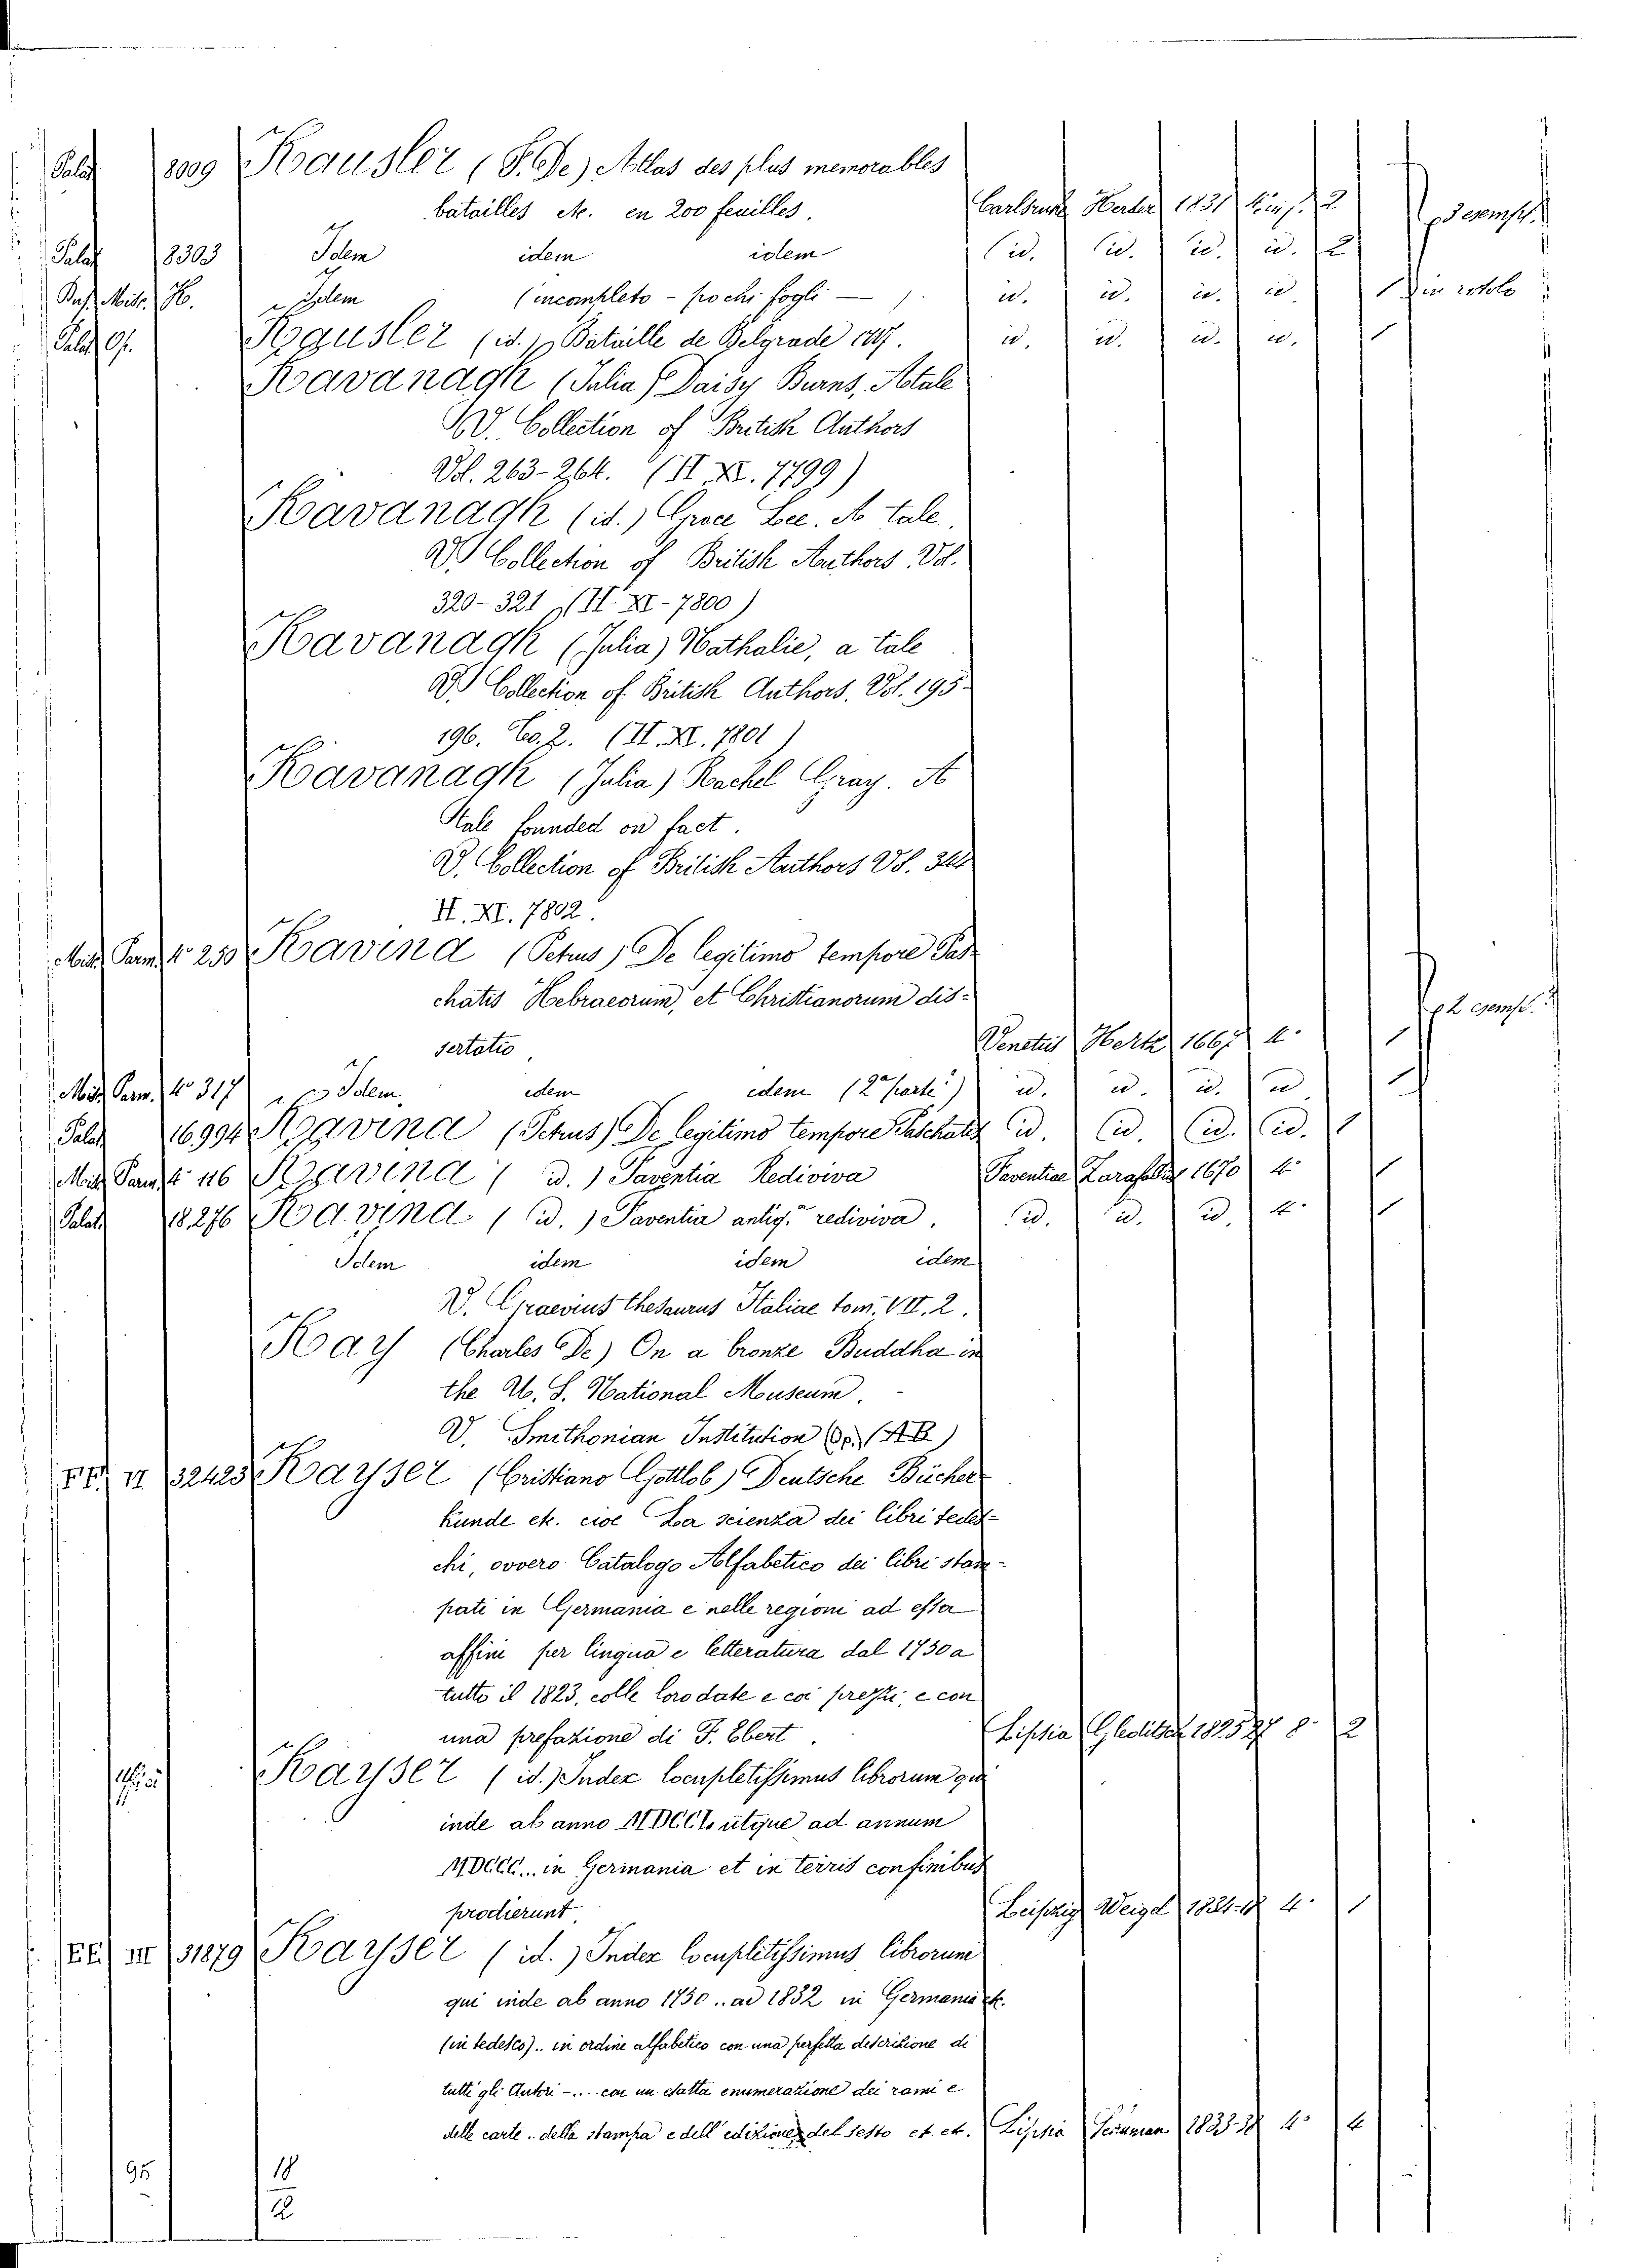 Palat 8009 Kausler (F. De) Atlas des plus memorables
batailles etc. en 200 feuilles. Carlsruhe Herder 1831 2
Palat 18303 Idem idem idem id. id. id. id. 2
Idem (incompleto - pochi fogli — ) id. id. id. id. in rotolo
Palat Kausler (id.) Bataille de Belgrade 1717. id. id. id. id. 1
Kavanagh (Julia) Daisy Burns, A tale
V. Collection of British Authors
Vol. 263-264. (II. XI. 7799)
Kavanagh (id.) Grace Lee. A tale.
V. Collection of British Authors. Vol.
320-321 (II. XI - 7800)
Kavanagh (Julia) Nathalie, a tale
V. Collection of British Authors. Vol. 195-
196. Co. 2. (II. XI. 7801)
Kavanagh (Julia) Rachel Gray. A
tale founded on fact.
V. Collection of British Authors Vol.
II. XI. 7802.
Misc. Parm. 4° 250 Kavina (Petrus) De legitimo tempore Pas-
chatis Hebraeorum, et Christianorum dis-
sertatio Venetiis Hertz 1667 4° 1 2 esempl.
Misc. Parm. 4° 317 Idem idem idem (2a parte) id. id. id. id. 1
Palat 16994 Kavina (Petrus) De legitimo tempore Paschatis id. id. id. id. 1
Misc. Parm. 4° 116 Kavina (id.) Faventia Rediviva Faventiae Zarafallius 1670 4° 1
Palat. 18276 Kavina (id.) Faventia antiq.ma rediviva. id. id. id. 4° 1
Idem idem idem idem
V. Graevius thesaurus Italiae tom. VII. 2.
Kay (Charles De) On a bronze Buddha in
the U. S. National Museum.
V. Smithonian Institution (AB)
FF. II 32423 Kayser (Cristiano Gottlob) Deutsche Bücher-
kunde etc. cioe La scienza dei libri tedes-
chi, ovvero Catalogo Alfabetico dei libri stam-
pati in Germania e nelle regioni ad essa
affini per lingua e letteratura dal 1750 a
tutto il 1823, colle loro date e coi prezzi, e con
una prefazione di F. Ebert. Lipsia Gleditsch 1825-27 8° 2
Kayser (id.) Index locupletissimus librorum qui
inde ab anno MDCCL utque ad annum
MDCCC... in Germania et in terris confinibus
prodierunt. Leipzig Weigel 4° 1
EE III 31879 Kayser (id.) Index locupletissimus librorum
qui inde ab anno 1750.. ad 1832 in Germania etc.
(in tedesco).. in ordine alfabetico con una perfetta descrizione di
tutti gli Autori -... con un esatta enumerazione dei rami e
delle carte.. della stampa e dell'edizione, del sesto et. et. Lipsia 4° 4
95 18
12